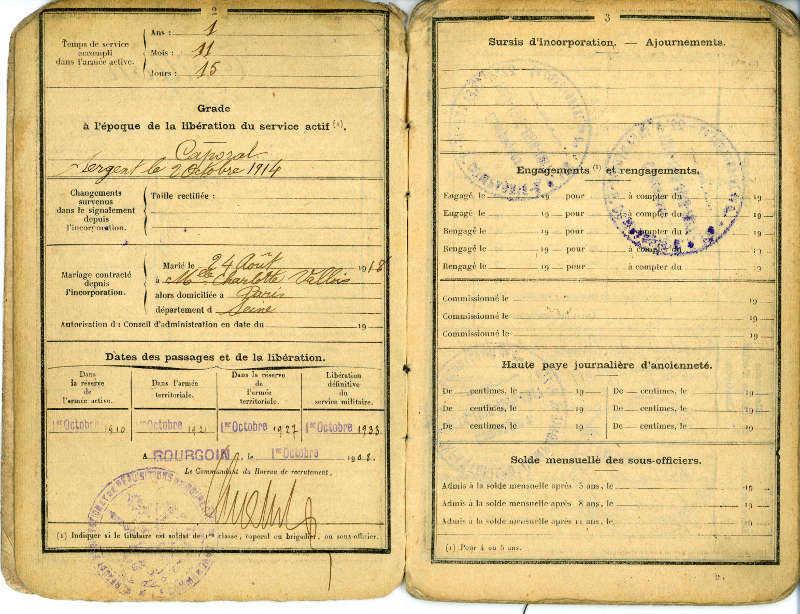 2
Temps de service
accompli
dans l'armée active.
Ans : 1
Mois : 11
Jours : 15
Grade
à l'époque de la libération du service actif (1).
Caporal
Sergent le 2 Octobre 1914
Changements
survenus
dans le signalement
depuis
l'incorporation.
Taille rectifiée :
Mariage contracté
depuis
l'incorporation.
Marié le 24 Août 1918
à Mlle Charlotte Vallois
alors domiciliée à Paris
département d Seine
Autorisation du Conseil d'administration en date du 19
Dates des passages et de la libération.
Dans
la réserve
de
l'armée active.
Dans l'armée
territoriale.
Dans la réserve
de
l'armée
territoriale.
Libération
définitive
du
service militaire.
1er Octobre 1910
1er Octobre 1921
1er Octobre 1927
1er Octobre 1933
A BOURGOIN, le 1er Octobre 1908.
Le Commandant du Bureau de recrutement,
(1) Indiquer si le titulaire est soldat de 1re classe, caporal ou brigadier, ou sous-officier.
3
Sursis d'incorporation. — Ajournements.
Engagements (1) et rengagements.
Engagé le 19 pour à compter du 19
Engagé le 19 pour à compter du 19
Rengagé le 19 pour à compter du 19
Rengagé le 19 pour à compter du 19
Rengagé le 19 pour à compter du 19
Commissionné le 19
Commissionné le 19
Commissionné le 19
Haute paye journalière d'ancienneté.
De centimes, le 19 De centimes, le 19
De centimes, le 19 De centimes, le 19
De centimes, le 19 De centimes, le 19
Solde mensuelle des sous-officiers.
Admis à la solde mensuelle après 5 ans, le 19
Admis à la solde mensuelle après 8 ans, le 19
Admis à la solde mensuelle après 11 ans, le 19
(1) Pour 4 ou 5 ans.
2.